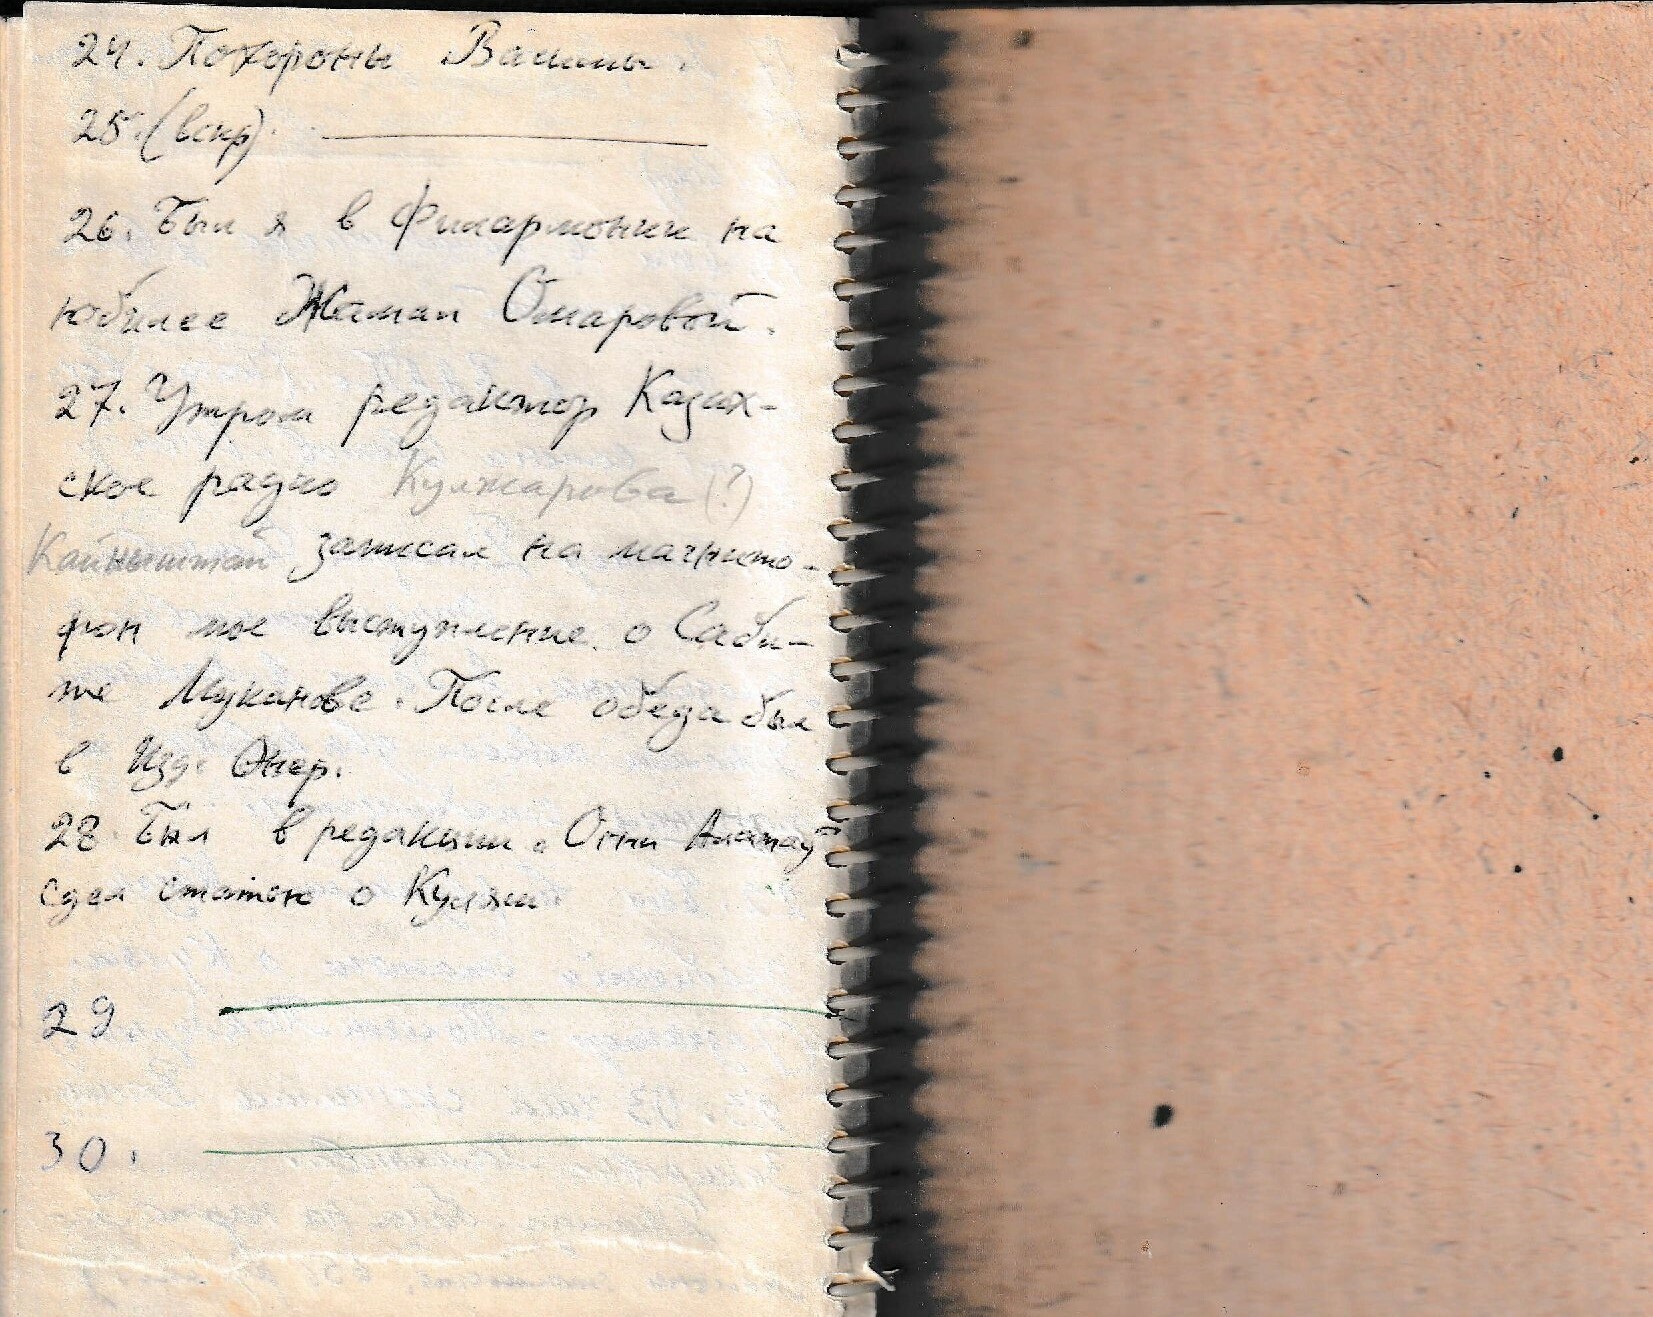 24. Похороны Вашины.
25. (вскр).
26. Был я в Филармонии на
юбилее Жамал Омаровой.
27. Утром редактор Казах-
ское радио Кулжарова (?)
Кайныштай записал на магнито-
фон мое выступление о Саби-
те Муканове. После обеда был
в Изд. Онер.
28. Был в редакции. Огни Алатау
сдал статью о Куляш
29
30.